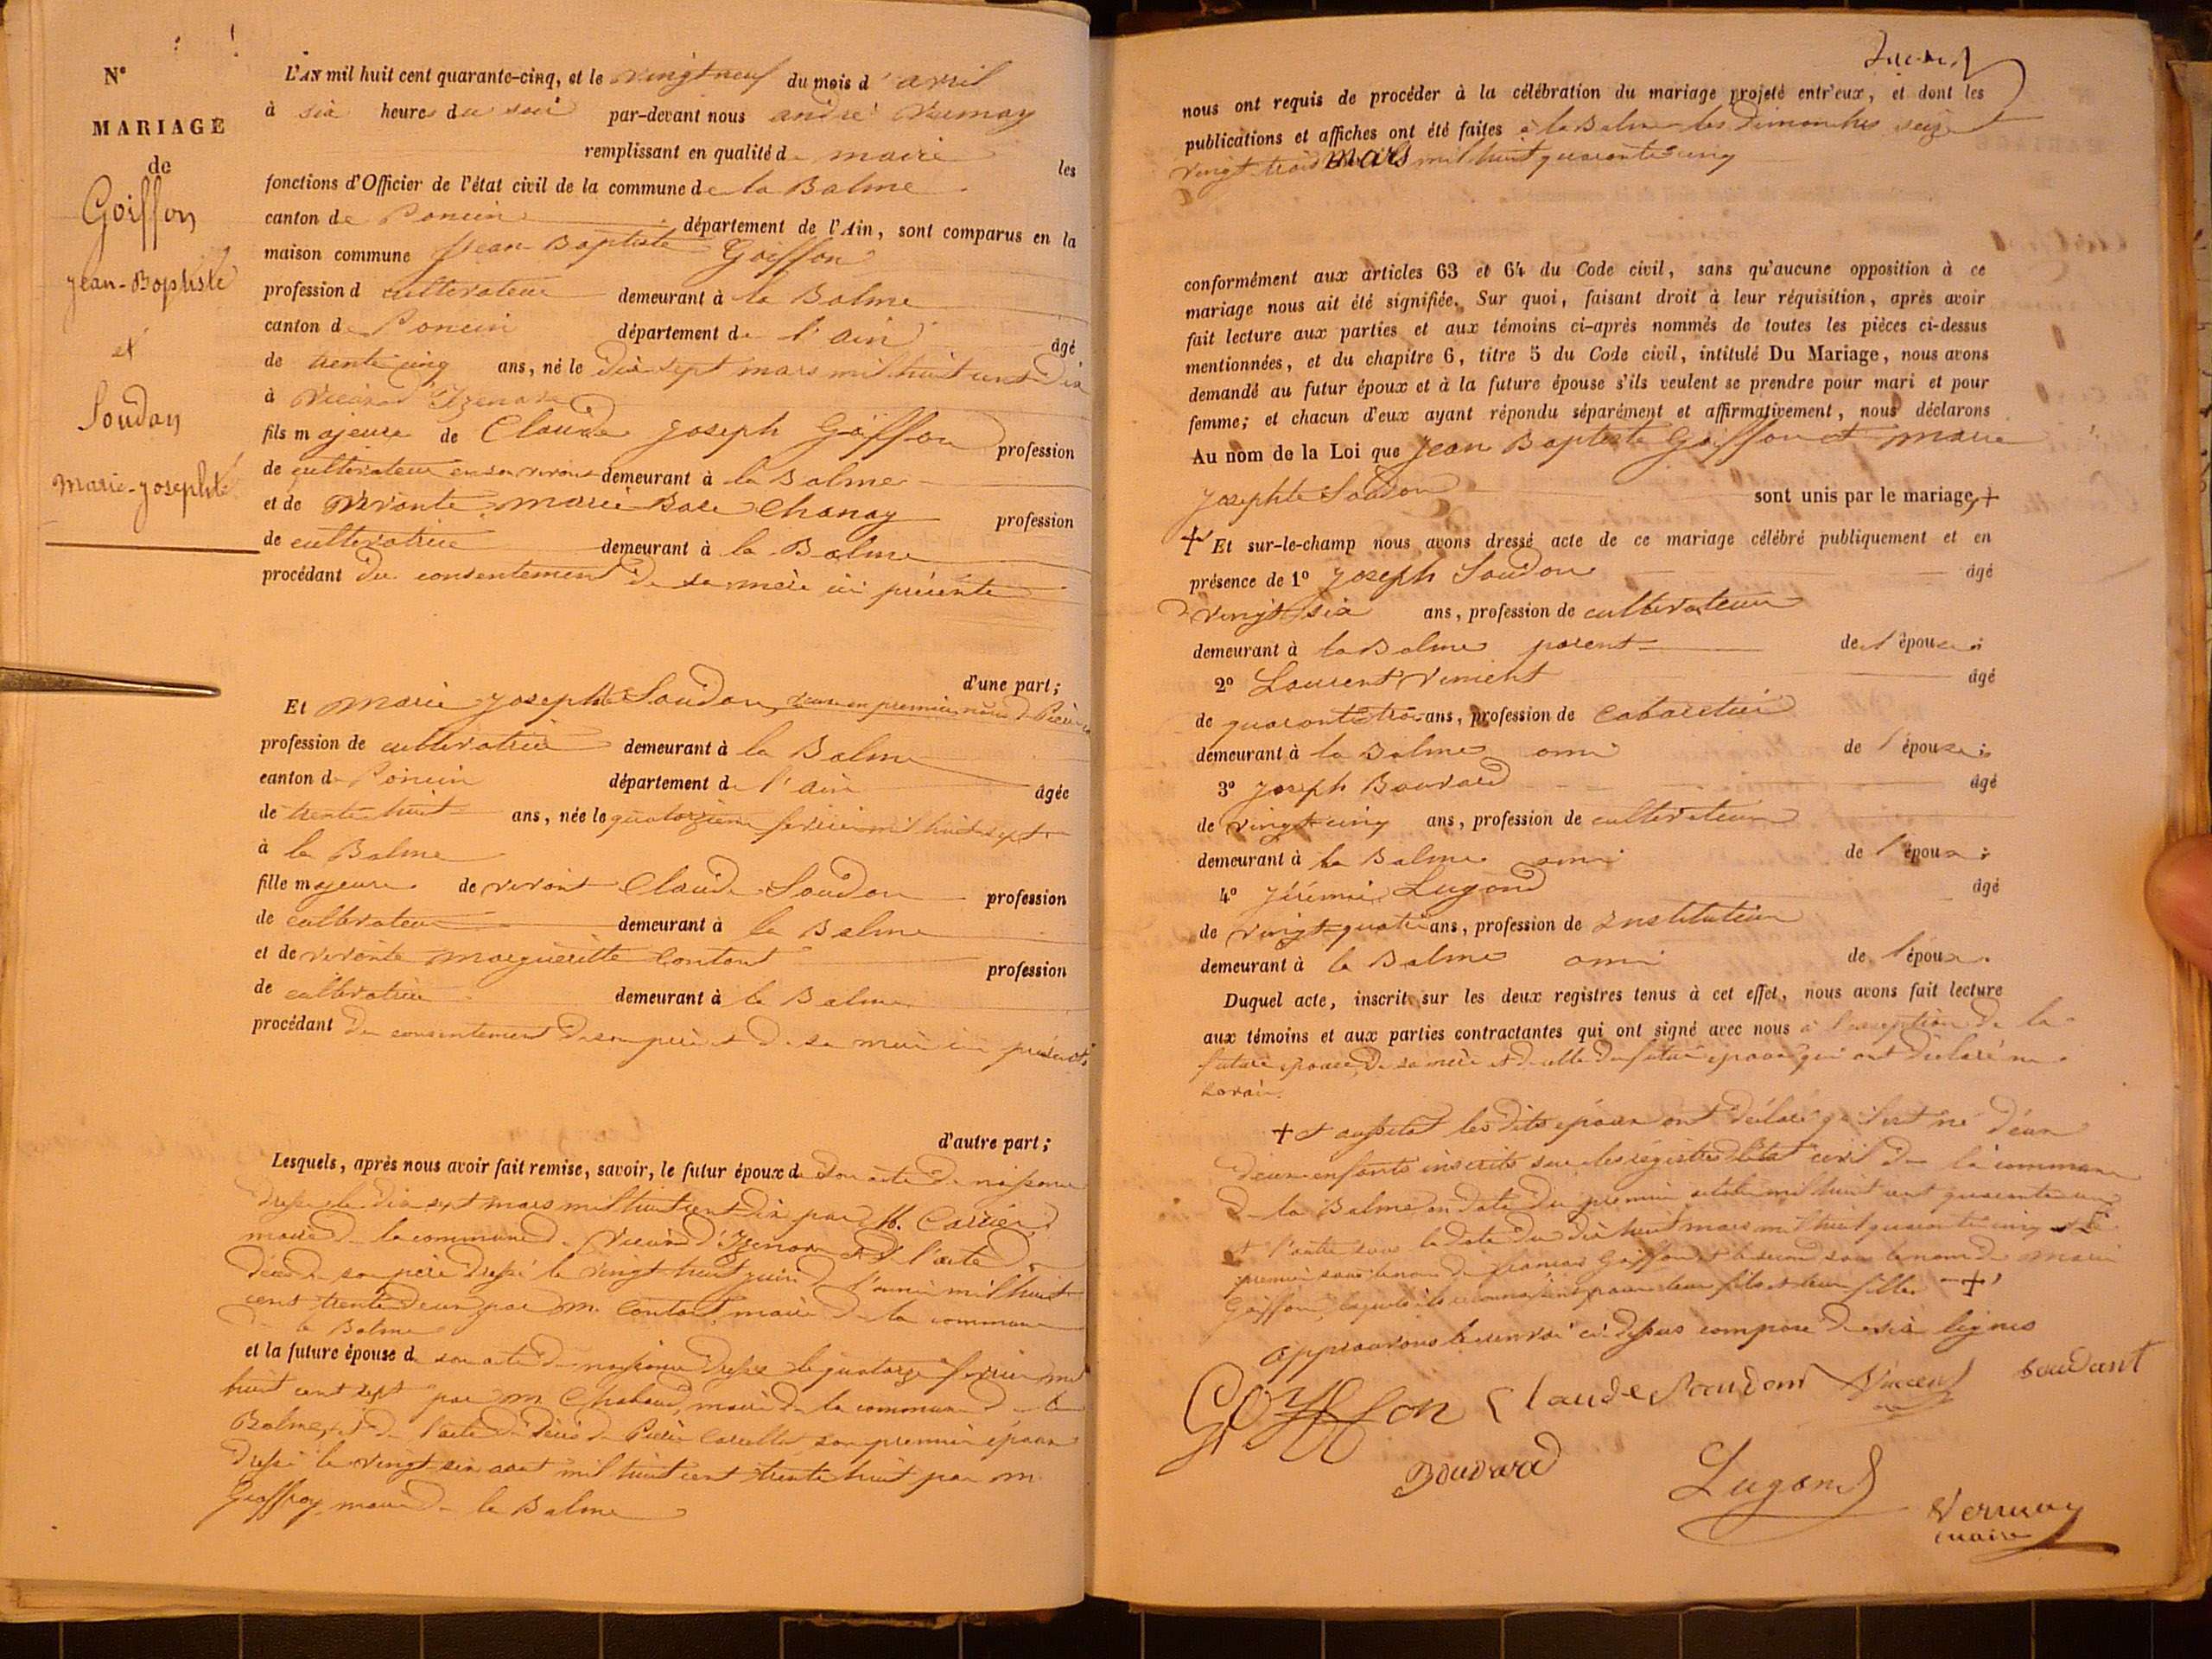 N°
MARIAGE
de
Goiffon
Jean-Baptiste
et
Soudan
Marie-Josephte
L'AN mil huit cent quarante-cinq, et le vingt neuf du mois d'avril
à six heures du soir par-devant nous andré Vernay
remplissant en qualité de maire les
fonctions d'Officier de l'état civil de la commune de la Balme
canton de Poncin département de l'Ain, sont comparus en la
maison commune Jean-Baptiste Goiffon
profession d cultivateur demeurant à la Balme
canton de Poncin département de l'ain âgé
de trente cinq ans, né le dix sept mars mil huit cent dix
à Vieux d'Izenave
fils majeur de Claude Joseph Goiffon profession
de cultivateur en son vivant demeurant à la Balme
et de vivante marie Chanay profession
de cultivatrice demeurant à la Balme
procédant du consentement de sa mère ici présente
d'une part;
Et marie Josephte Soudon, veuve en premières noces de Pierre
profession de cultivatrice demeurant à la Balme
canton de Poncin département de l'ain âgée
de trente huit ans, née le quatorzieme fevrier mil huit sept
à la Balme
fille majeure de vivant Claude Soudon profession
de cultivateur demeurant à la Balme
et de vivante margueritte Contant profession
de cultivatrice demeurant à la Balme
procédant du consentement de son père et de sa mère ici présents
d'autre part;
Lesquels, après nous avoir fait remise, savoir, le futur époux de son acte de naissance
dressé le dix sept mars mil huit cent dix par M. Carrier
maire de la commune de Vieux d'Izenave et de l'acte de
décès de son père dressé le vingt huit juin de l'année mil huit
cent trente deux par m. Contant, maire de la commune
de la Balme
et la future épouse de son acte de naissance dressé le quatorze fevrier mil
huit cent sept par m. Chabaud, maire de la commune de la
Balme, et de l'acte de décès de Pierre son premier époux
dressé le vingt six aout mil huit cent trente huit par m.
Geoffroy maire de la Balme
nous ont requis de procéder à la célébration du mariage projeté entr'eux, et dont les
publications et affiches ont été faites à la Balme les dimanches seize et
vingt trois mars mil huit quarante cinq
conformément aux articles 63 et 64 du Code civil, sans qu'aucune opposition à ce
mariage nous ait été signifiée. Sur quoi, faisant droit à leur réquisition, après avoir
fait lecture aux parties et aux témoins ci-après nommés de toutes les pièces ci-dessus
mentionnées, et du chapitre 6, titre 5 du Code civil, intitulé Du Mariage, nous avons
demandé au futur époux et à la future épouse s'ils veulent se prendre pour mari et pour
femme; et chacun d'eux ayant répondu séparément et affirmativement, nous déclarons
Au nom de la Loi que Jean Baptiste Goiffon et marie
Josephte Soudon sont unis par le mariage, +
+ Et sur-le-champ nous avons dressé acte de ce mariage célébré publiquement et en
présence de 1° Joseph Soudon âgé
de vingt six ans, profession de cultivateur
demeurant à la Balme parent de l'épouse;
2° Laurent Vincent âgé
de quarante trois ans, profession de Cabaretier
demeurant à la Balme ami de l'épouse;
3° Joseph Bouvard âgé
de vingt cinq ans, profession de cultivateur
demeurant à la Balme ami de l'époux;
4° Jérémie Lugand âgé
de vingt-quatre ans, profession de Instituteur
demeurant à la Balme ami de l'époux.
Duquel acte, inscrit sur les deux registres tenus à cet effet, nous avons fait lecture
aux témoins et aux parties contractantes qui ont signé avec nous à l'exception de la
future épouse, de sa mère et de celle du futur époux qui ont déclaré ne
savoir.
+ et aussitot les dits époux ont déclaré qu'il est né d'eux
deux enfants inscrits sur les régistres d'état civil de la commune
de la Balme en date du premier octobre mil huit cent quarante un
et l'autre sous la date du dix huit mars mil huit quarante cinq le
premier sous le nom de françois Goiffon et le second sous le nom de marie
Goiffon, lesquels ils reconnaissent pour leur fils et leur fille. +
approuvons le renvoi ci-dessus composé de six lignes
Goyffon Claude Soudan Vincent Soudant
Bouvard
Lugand
Vernay
maire